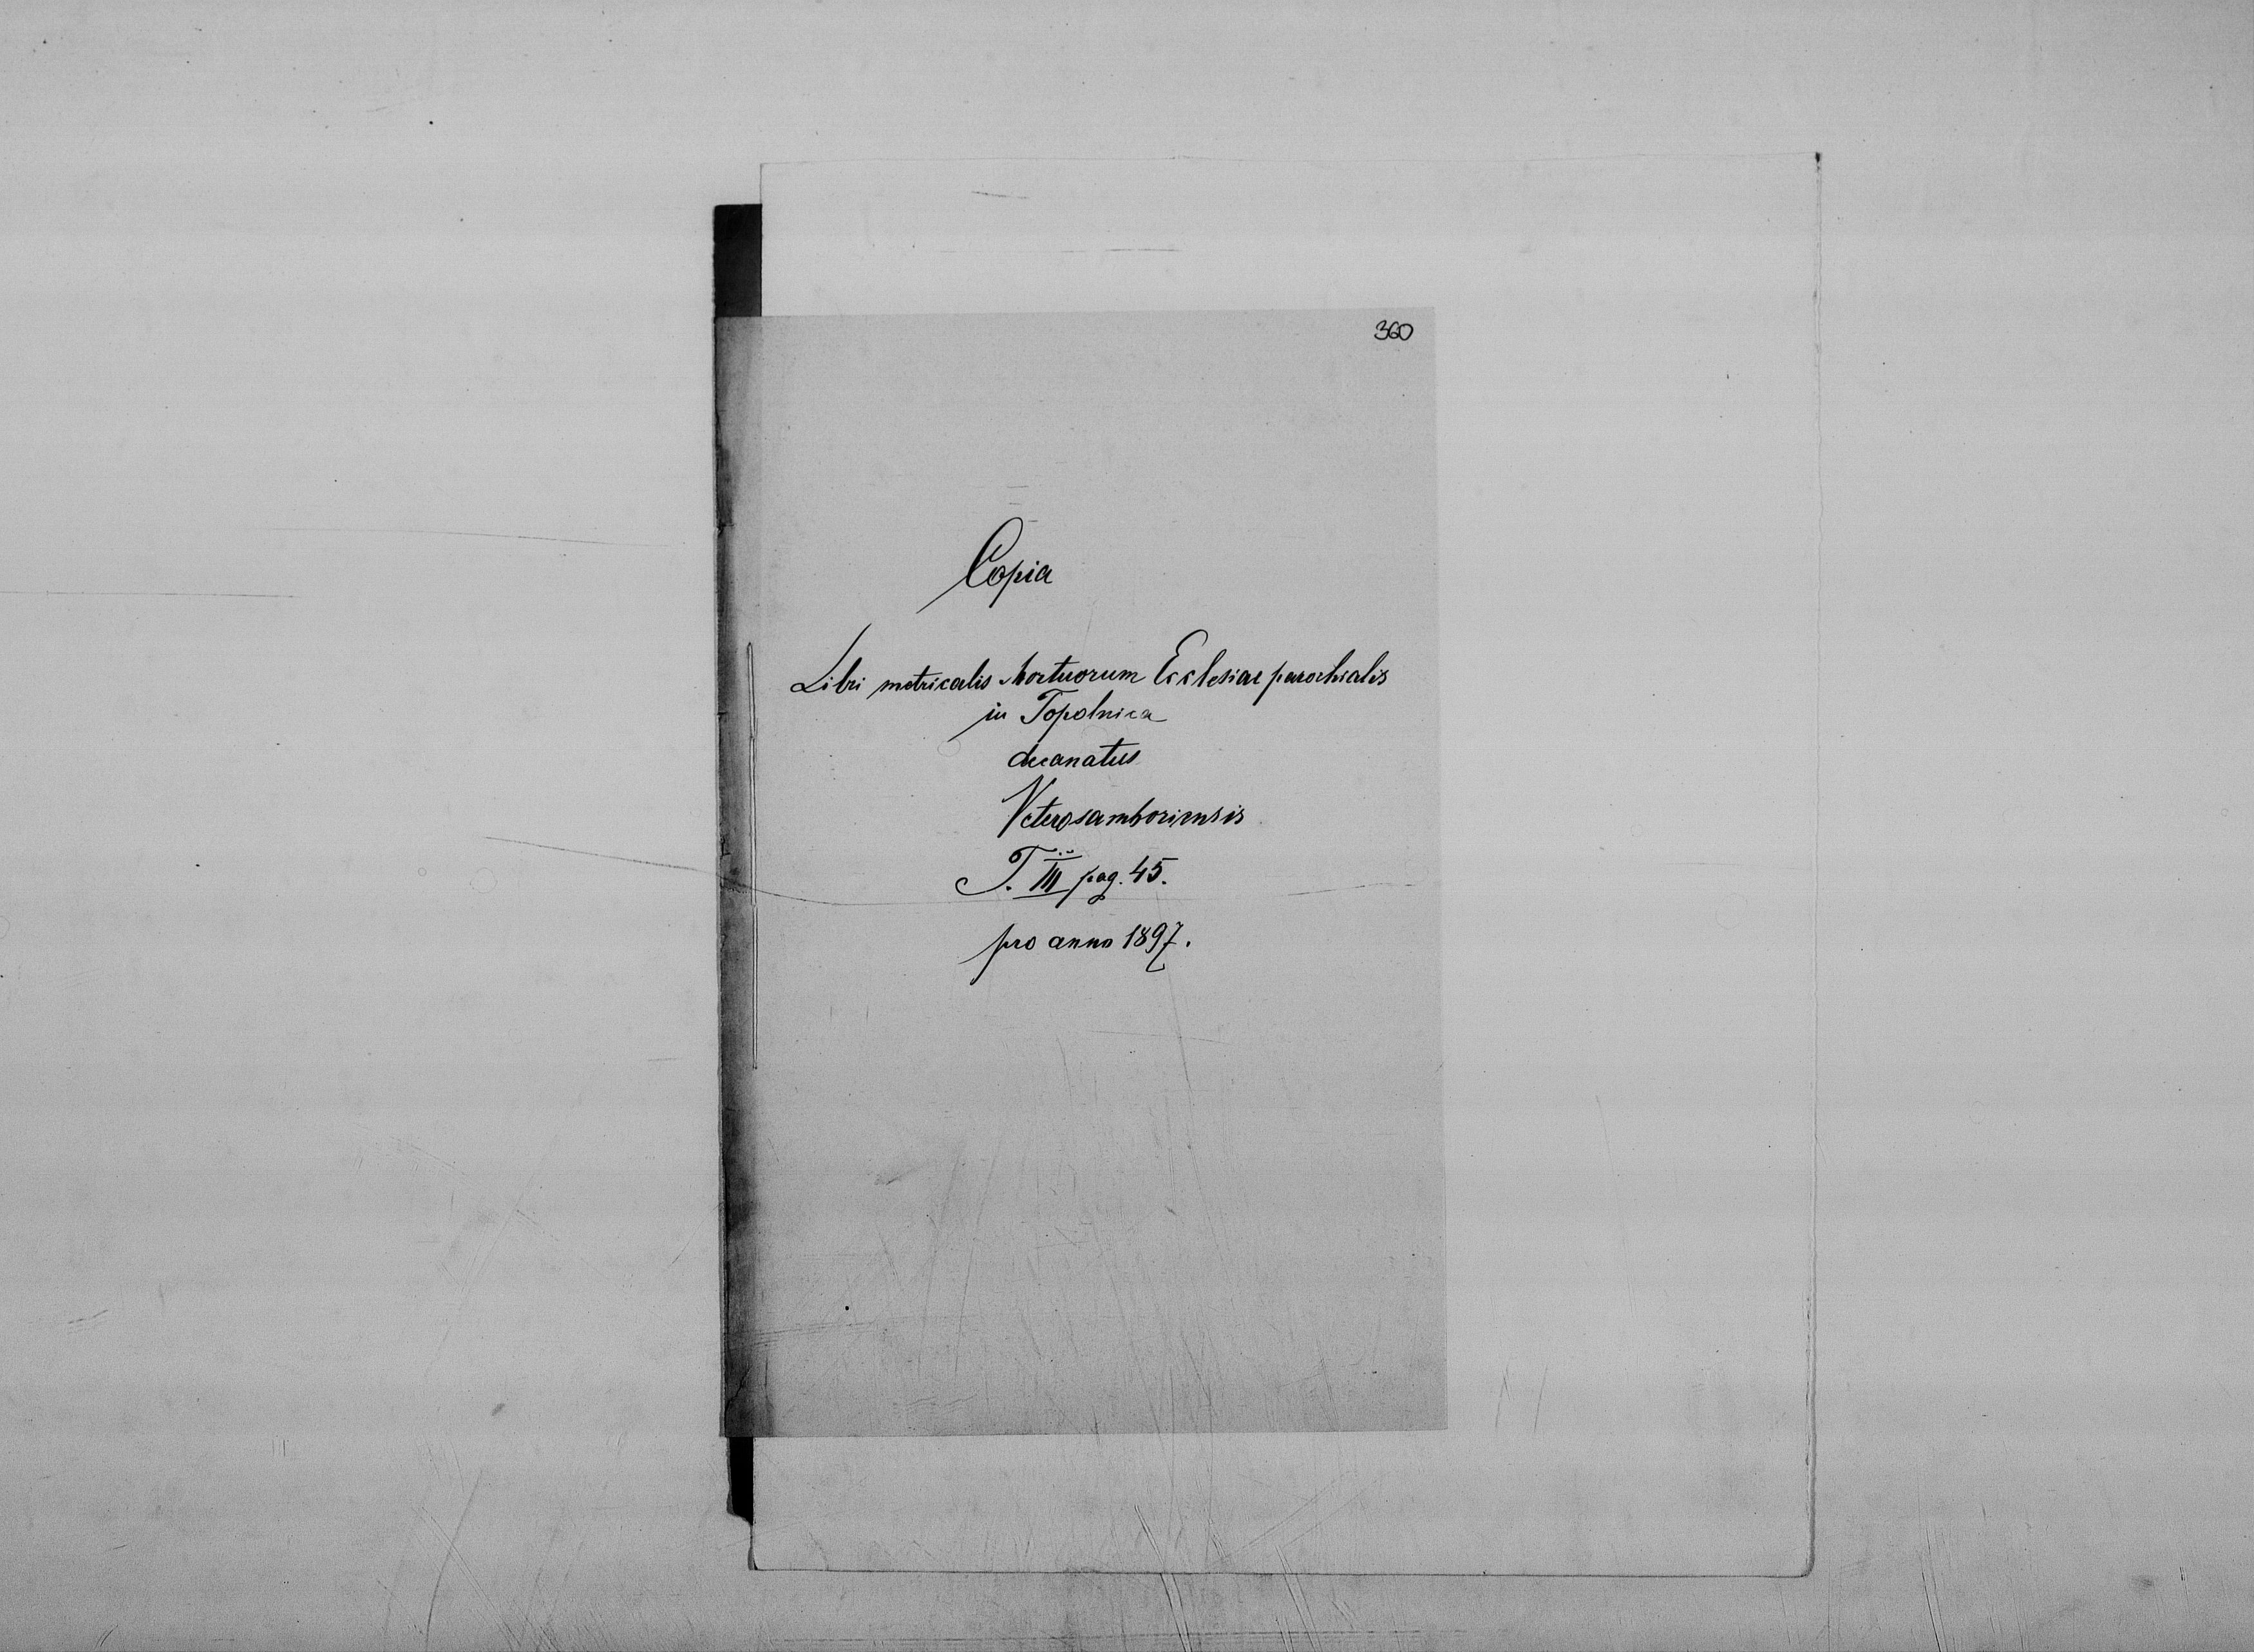 360
Copia
Libri metricalis Mortuorum Ecclesiae parochialis
in Topolnica
decanatus
Veterosamboriensis
T. III pag. 45.
pro anno 1897.